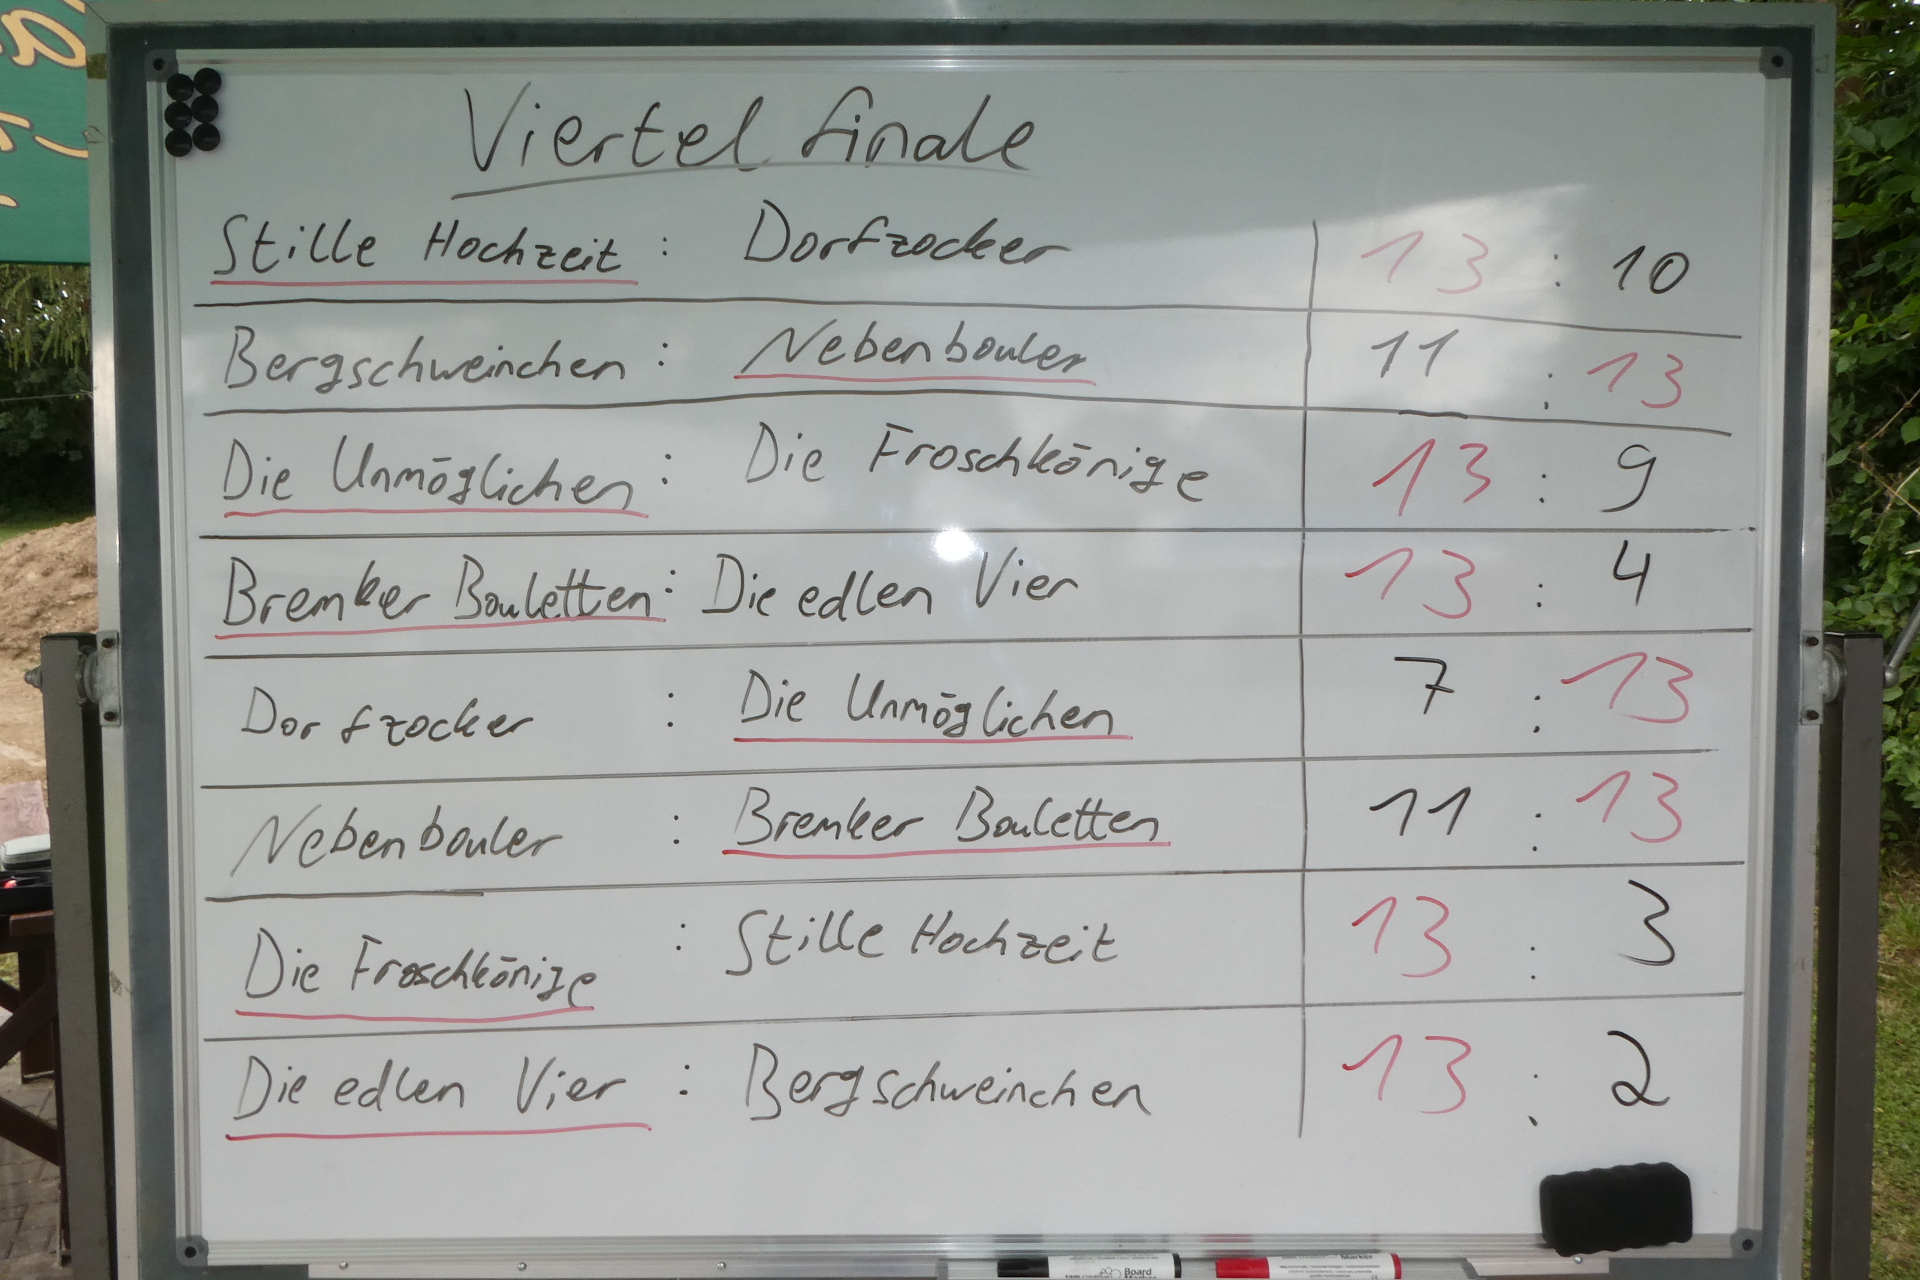 Viertelfinale
Stille Hochzeit : Dorfzocker 13 : 10
Bergschweinchen : Nebenbouler 11 : 13
Die Unmöglichen : Die Froschkönige 13 : 9
Bremker Bouletten : Die edlen Vier 13 : 4
Dorfzocker : Die Unmöglichen 7 : 13
Nebenbouler : Bremker Bouletten 11 : 13
Die Froschkönige : Stille Hochzeit 13 : 3
Die edlen Vier : Bergschweinchen 13 : 2
Board Marker
Marker